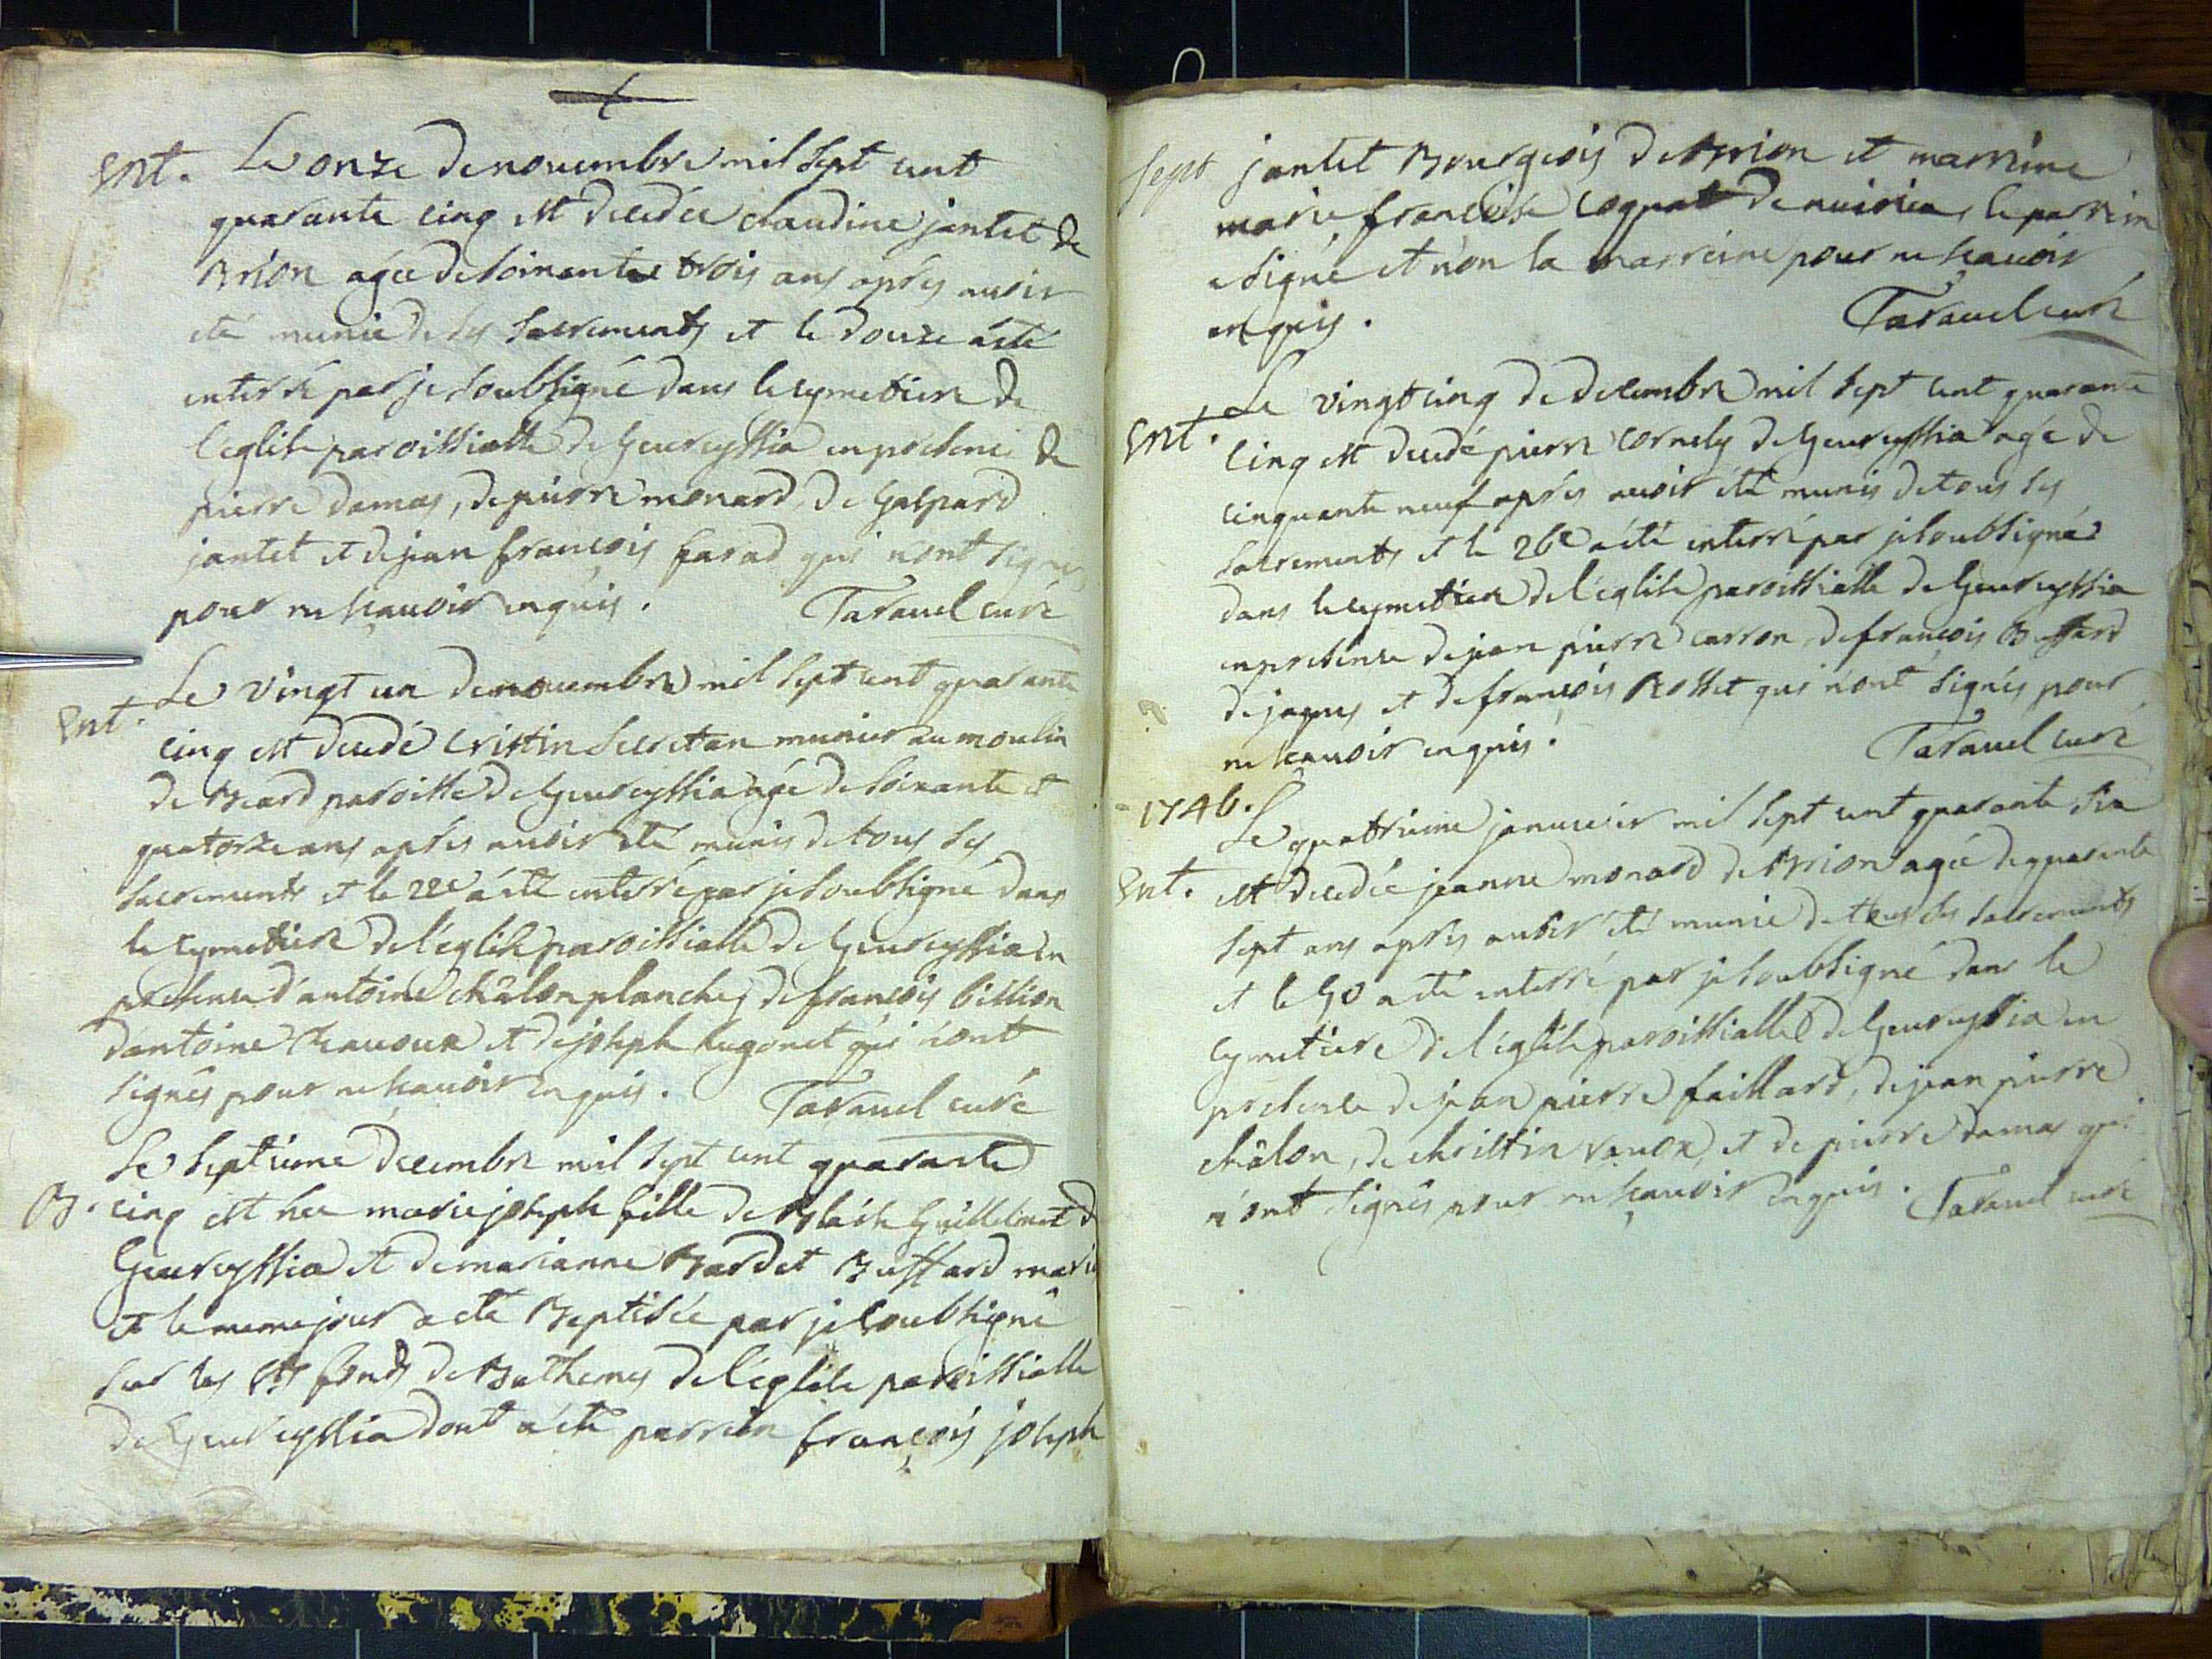 Ent. Le onze de nouembre mil sept cent
quarante cinq est decedée claudine jantet de
Brion agée de soixante trois ans après auoir
eté munie de ses sacrements et le douze a été
enterré par je soubsigné dans le cymetiere de
l'eglise paroissialle de Geureyssia en presence de
pierre damas, de pierre monard, de Gaspard
jantet et de jean françois farad qui n'ont signés
pour ne sçauoir enquis. Tarauel curé
Ent. Le vingt un de nouembre mil sept cent quarante
cinq est decedé Cristin Secretan munier au moulin
de Beard paroisse de Geureyssia agé de soixante et
quatorze ans après auoir été munis de tous ses
sacrements et le 22e a été enterré par je soubsigné dans
le cymetiere de l'eglise paroissialle de Geureyssia en
presence d'antoine châlon planche, de françois
d'antoine et de joseph hugonet qui n'ont
signés pour ne sçauoir enquis. Tarauel curé
Le septieme decembre mil sept cent quarante
B. cinq est née marie joseph fille de Blaise Guillelmet de
Geureyssia et de marianne Bardet Buffard mariés
et le meme jour a eté Baptisée par je soubsigné
sur les fonds de Bathemes de l'eglise paroissialle
de Geureyssia dont a eté parrein françois joseph
sept jantet Bourgeois de Brion et marreine
marie françoise cognat de le parrein
a signé et non la marreine pour ne sçauoir
enquis. Tarauel curé
Le vingt cinq de decembre mil sept cent quarante
Ent. cinq est decedé pierre cornely de Geureyssia agé de
cinquante neuf après auoir été munis de tous ses
sacrements et le 26e a été enterré par je soubsigné
dans le cymetiere de l'église paroissialle de Geureyssia
en presence de jean pierre carron, de françois Buffard
de jaques et de françois Rosset qui n'ont signés pour
ne sçauoir enquis. Tarauel curé
1746. Le quattrieme januier mil sept cent quarante six
Ent. est decedée jeanne monard de Brion agée de quarante
sept ans après auoir été munie de tous ses sacrements
et le 5e a été enterré par je soubsigné dans le
cymetiere de l'église paroissialle de Geureyssia en
presence de jean pierre faillard, de jean pierre
châlon, de christin et de pierre damas qui
n'ont signés pour ne sçauoir enquis. Tarauel curé